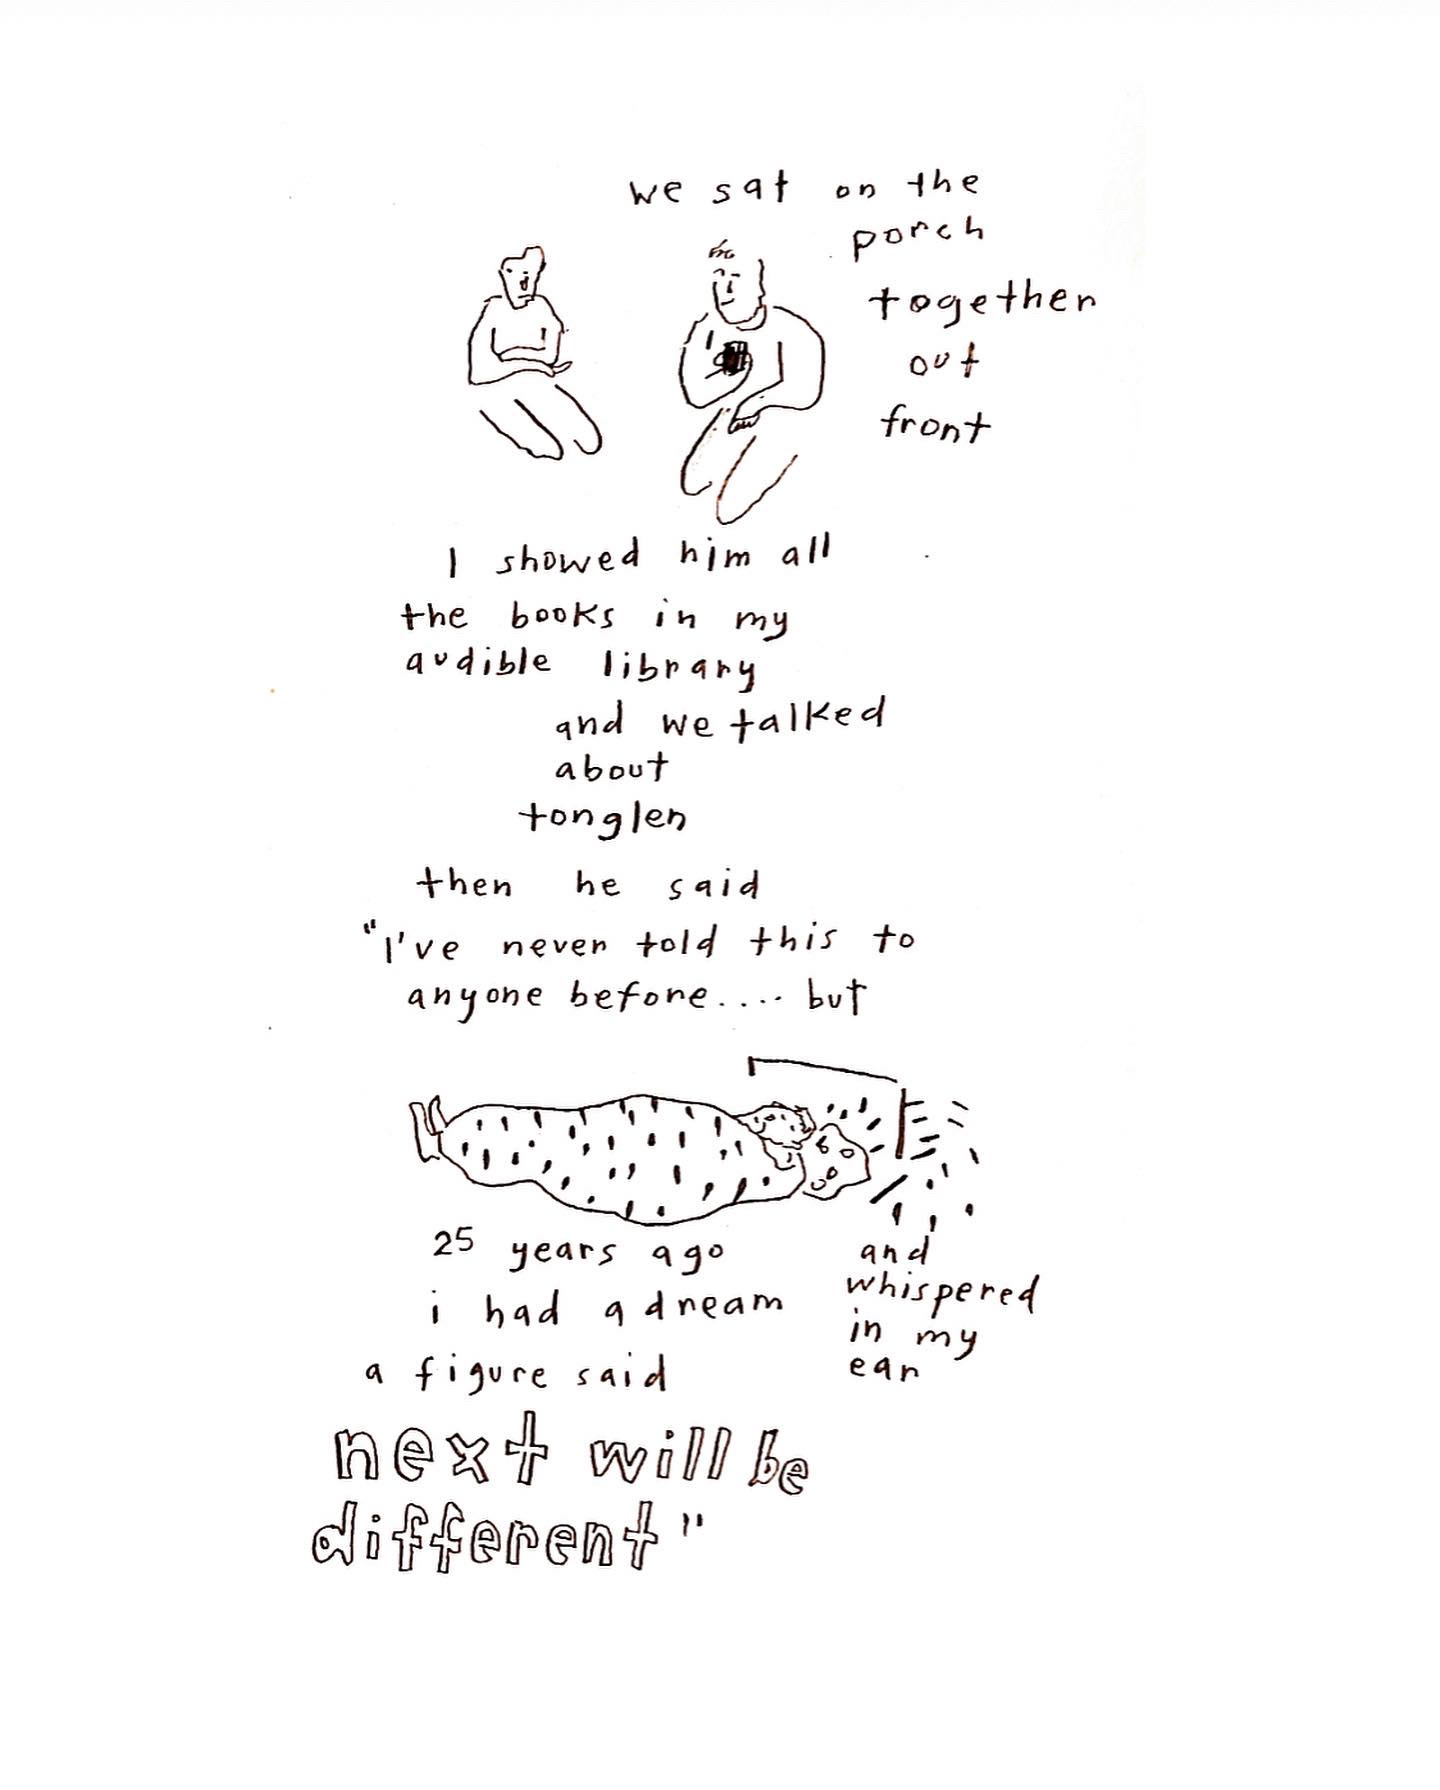 we sat on the
porch
together
out
front
I showed him all
the books in my
audible library
and we talked
about
tonglen
then he said
"I've never told this to
anyone before.... but
25 years ago
i had a dream
a figure said
and
whispered
in my
ear
next will be
different"